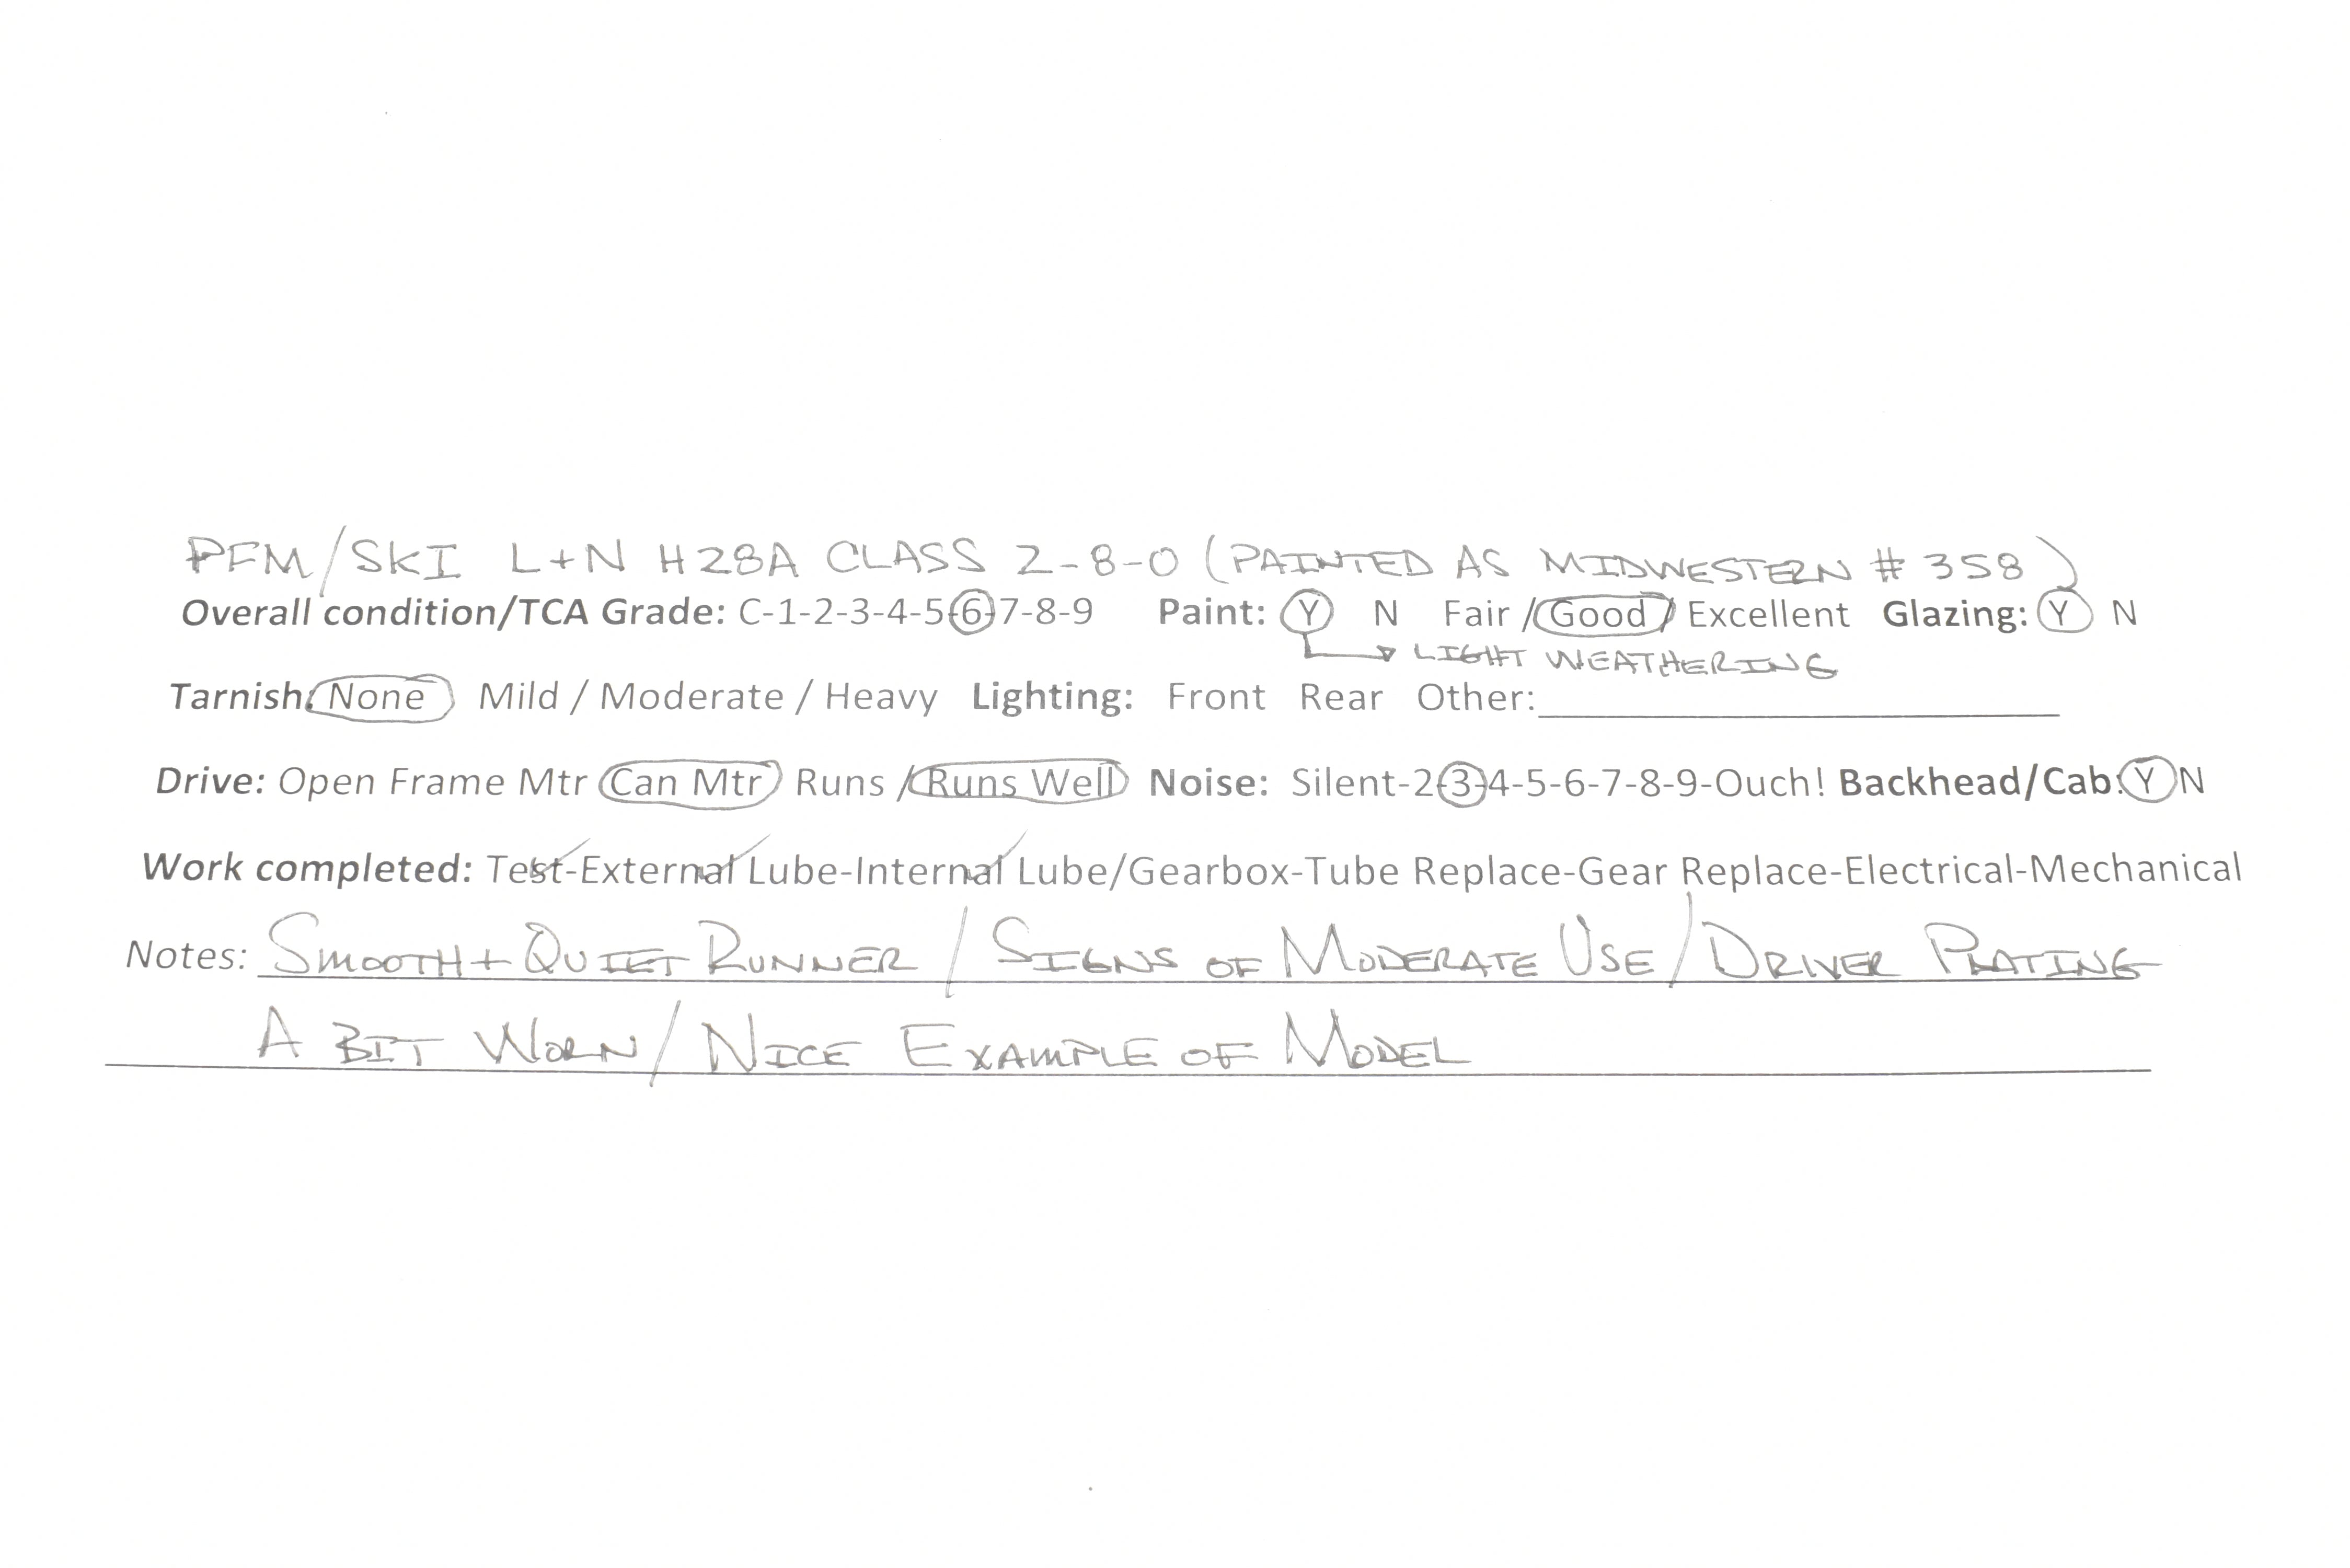 PFM/SKI L+N H28A CLASS 2-8-0 (PAINTED AS MIDWESTERN # 358)
Overall condition/TCA Grade: C-1-2-3-4-5-6-7-8-9 Paint: Y N Fair / Good / Excellent Glazing: Y N
LIGHT WEATHERING
Tarnish: None Mild / Moderate / Heavy Lighting: Front Rear Other:
Drive: Open Frame Mtr Can Mtr Runs / Runs Well Noise: Silent-2-3-4-5-6-7-8-9-Ouch! Backhead/Cab: Y N
Work completed: Test-External Lube-Internal Lube/Gearbox-Tube Replace-Gear Replace-Electrical-Mechanical
Notes: SMOOTH + QUIET RUNNER / SIGNS OF MODERATE USE / DRIVER PLATING
A BIT WORN / NICE EXAMPLE OF MODEL